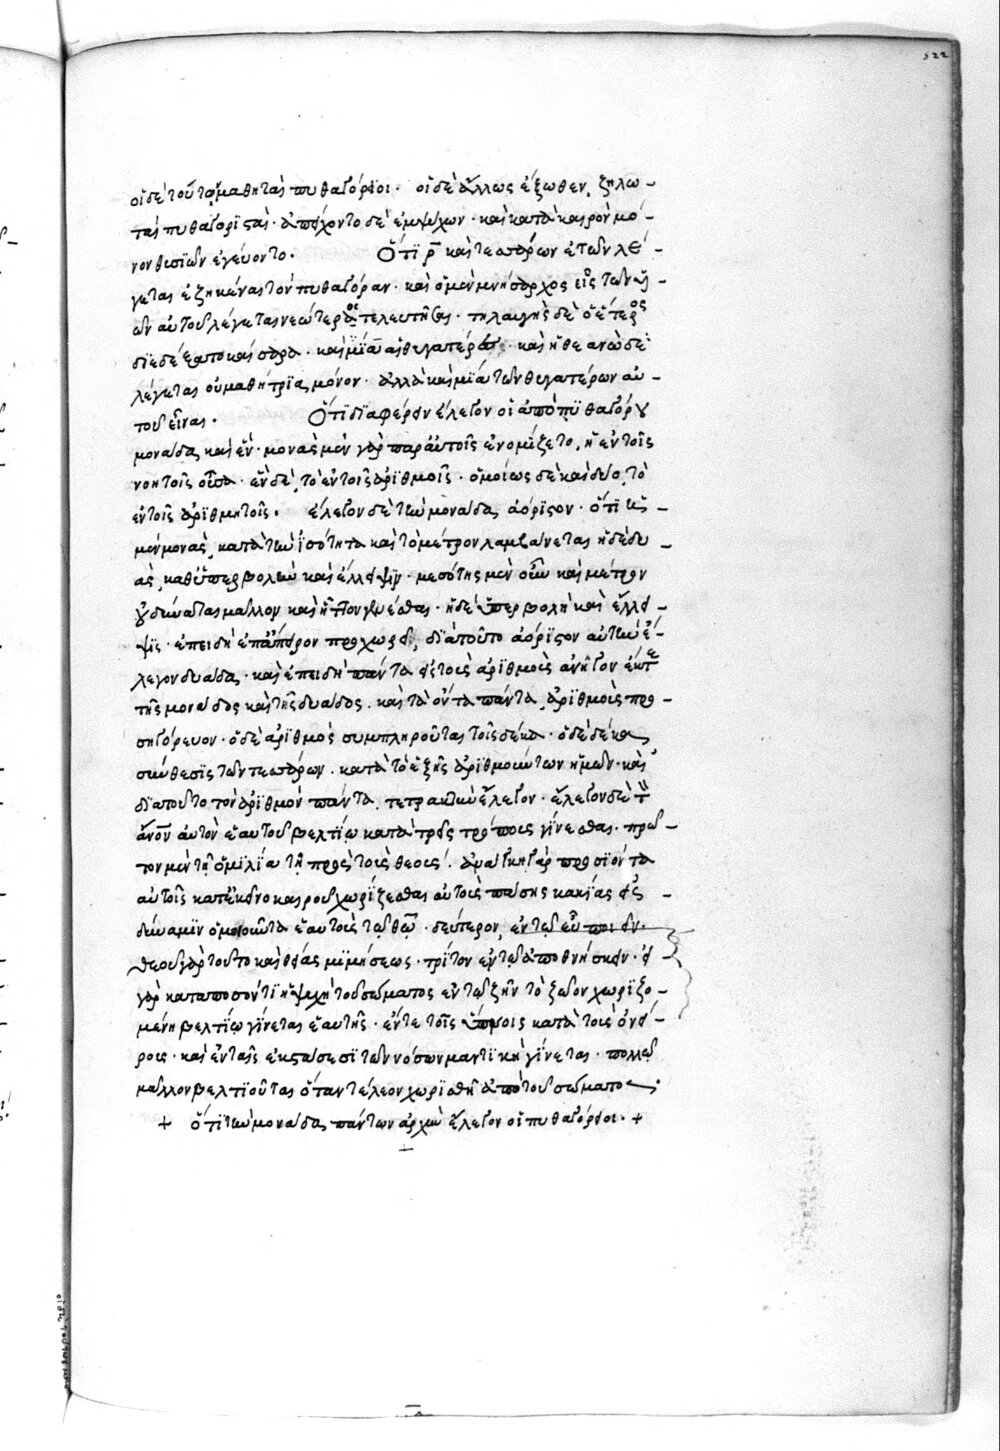 322
οἱ δὲ τούτων μαθηταὶ πυθαγόρειοι· οἱ δὲ ἄλλως ἔξωθεν ζηλω-
ταὶ πυθαγορισταί· ἀπείχοντο δὲ ἐμψύχων· καὶ κατὰ καιρὸν μό-
νον θυσιῶν ἐγεύοντο. Ὅτι ρ̄ καὶ τεσσάρων ἐτῶν λέ-
γεται ἐζηκέναι τὸν πυθαγόραν· καὶ ὁ μὲν μνήσαρχος εἷς τῶν υἱ-
ῶν αὐτοῦ λέγεται νεώτερος τελευτῆσαι· τηλαυγὴς δὲ ὁ ἕτερος
διεδέξατο καὶ σάρα· καὶ μυῖα αἱ θυγατέρες· καὶ ἡ θεανὼ δὲ
λέγεται οὐ μαθήτρια μόνον· ἀλλὰ καὶ μία τῶν θυγατέρων αὐ-
τοῦ εἶναι. Ὅτι διαφέρειν ἔλεγον οἱ ἀπὸ πυθαγόρου
μονάδα καὶ ἕν· μονὰς μὲν γὰρ παρ' αὐτοῖς ἐνομίζετο, ἡ ἐν τοῖς
νοητοῖς οὖσα· ἓν δὲ, τὸ ἐν τοῖς ἀριθμοῖς· ὁμοίως δὲ καὶ δύο, τὸ
ἐν τοῖς ἀριθμητοῖς. ἔλεγον δὲ τὴν μονάδα, ἀόριστον· ὅτι ἡ
μὲν μονὰς κατὰ τὴν ἰσότητα καὶ τὸ μέτρον λαμβάνεται ἡ δὲ δυ-
ὰς καθ' ὑπερβολὴν καὶ ἔλλειψιν· μεσότης μὲν οὖν καὶ μέτρον
οὐ δύναται μᾶλλον καὶ ἧττον γενέσθαι· ἡ δὲ ὑπερβολὴ καὶ ἔλλει-
ψις· ἐπειδὴ ἐπ' ἄπειρον προχωρεῖ, διὰ τοῦτο ἀόριστον αὐτὴν ἔ-
λεγον δυάδα· καὶ ἐπειδὴ πάντα εἰς τοὺς ἀριθμοὺς ἀνῆγον ἔκ τε
τῆς μονάδος καὶ τῆς δυάδος. καὶ τὰ ὄντα πάντα, ἀριθμοὺς προ
σηγόρευον· ὁ δὲ ἀριθμὸς συμπληροῦται τοῖς δέκα· ὁ δὲ δέκα
σύνθεσις τῶν τεσσάρων. κατὰ τὸ ἑξῆς ἀριθμούντων ἡμῶν· καὶ
διὰ τοῦτο τὸν ἀριθμὸν πάντα, τετρακτὺν ἔλεγον· ἔλεγον δὲ τὸν
ἄνον αὐτὸν ἑαυτοῦ βελτίω κατὰ τρεῖς τρόπους γίνεσθαι· πρῶ-
τον μὲν τῇ ὁμιλίᾳ τῇ πρὸς τοὺς θεούς. ἀνάγκη γὰρ προσιόντα
αὐτοῖς κατ' ἐκεῖνο καιροῦ χωρίζεσθαι αὐτοὺς πάσης κακίας εἰς
δύναμιν ὁμοιοῦντα ἑαυτοὺς τῷ θεῷ· δεύτερον, ἐν τῷ εὖ ποιεῖν·
θεοῦ γὰρ τοῦτο καὶ θείας μιμήσεως· τρίτον ἐν τῷ ἀποθνήσκειν· εἰ
γὰρ κατὰ ποσόν τι ἡ ψυχὴ τοῦ σώματος ἐν τῷ ζῆν τὸ ζῶον χωριζο-
μένη βελτίω γίνεται ἑαυτῆς· ἔν τε τοῖς ὕπνοις κατὰ τοὺς ὀνεί-
ρους· καὶ ἐν ταῖς ἐκστάσεσι τῶν νόσων μαντικὴ γίνεται· πολλῷ
μᾶλλον βελτιοῦται ὅταν τέλεον χωρισθῇ ἀπὸ τοῦ σώματος.
+ ὅτι τὴν μονάδα πάντων ἀρχὴν ἔλεγον οἱ πυθαγόρειοι. +
+